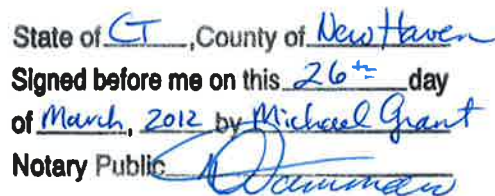 State of CT, County of New Haven
Signed before me on this 26th day
of March, 2012 by Michael Grant
Notary Public